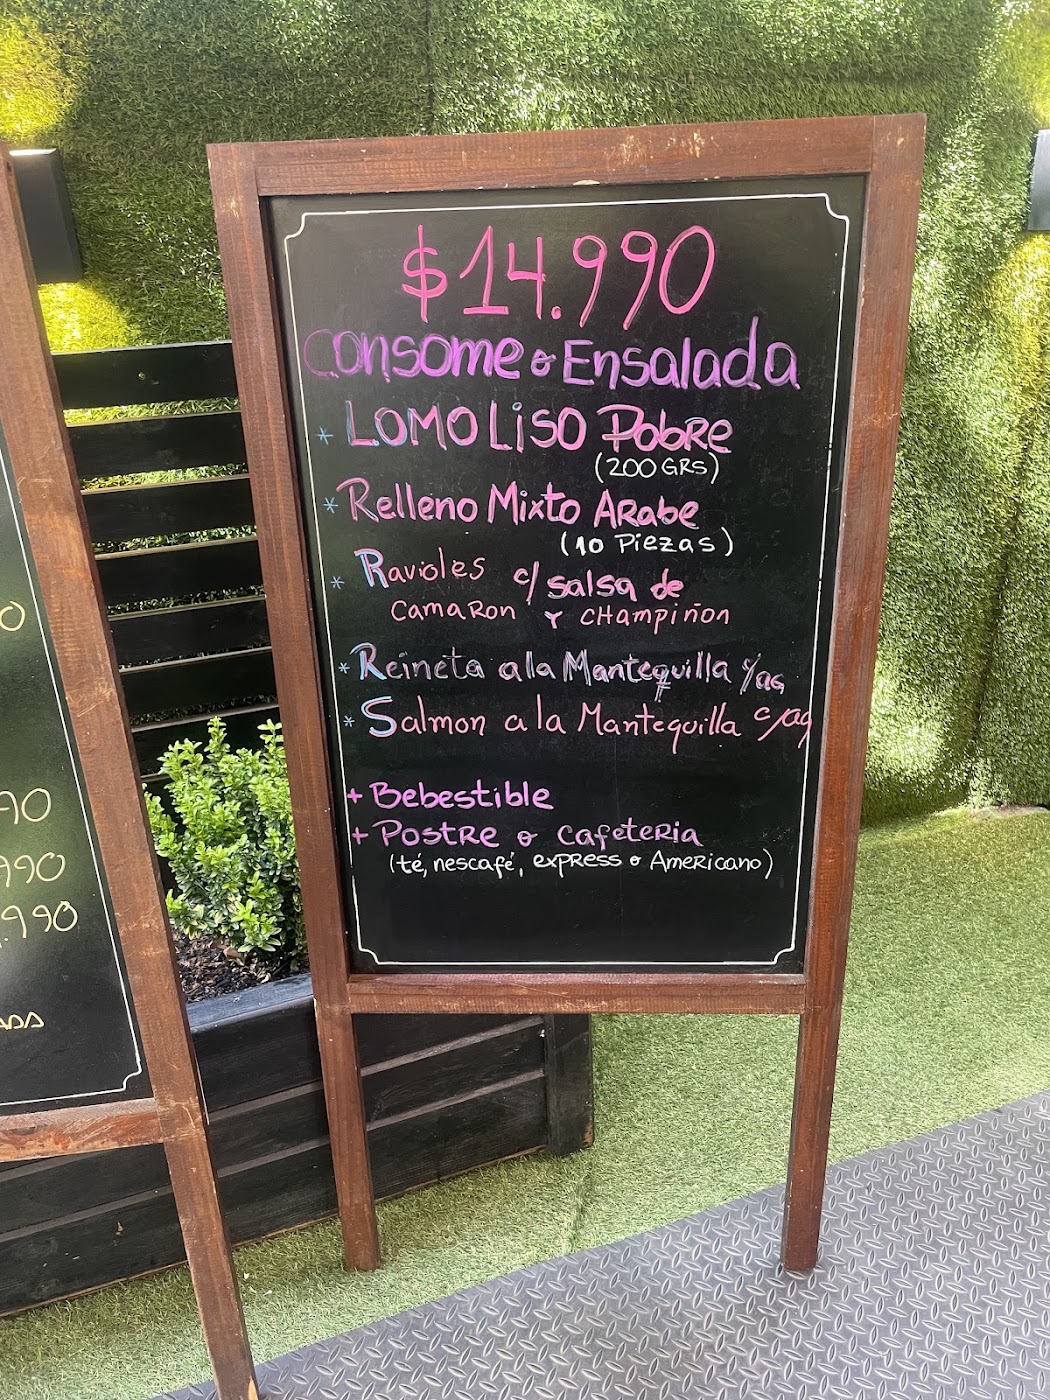 $14.990
Consome o Ensalada
* LOMO LiSO PobRe
(200 GRS)
* Relleno Mixto ARabe
(10 Piezas)
* Ravioles c/ salsa de
CamaRon Y CHampiñon
* Reineta a la Mantequilla c/ag
* Salmon a la Mantequilla c/ag
+ Bebestible
+ PostRe o CafeteRia
(té, nescafé, expRess o AmeRicano)
0
90
990
.990